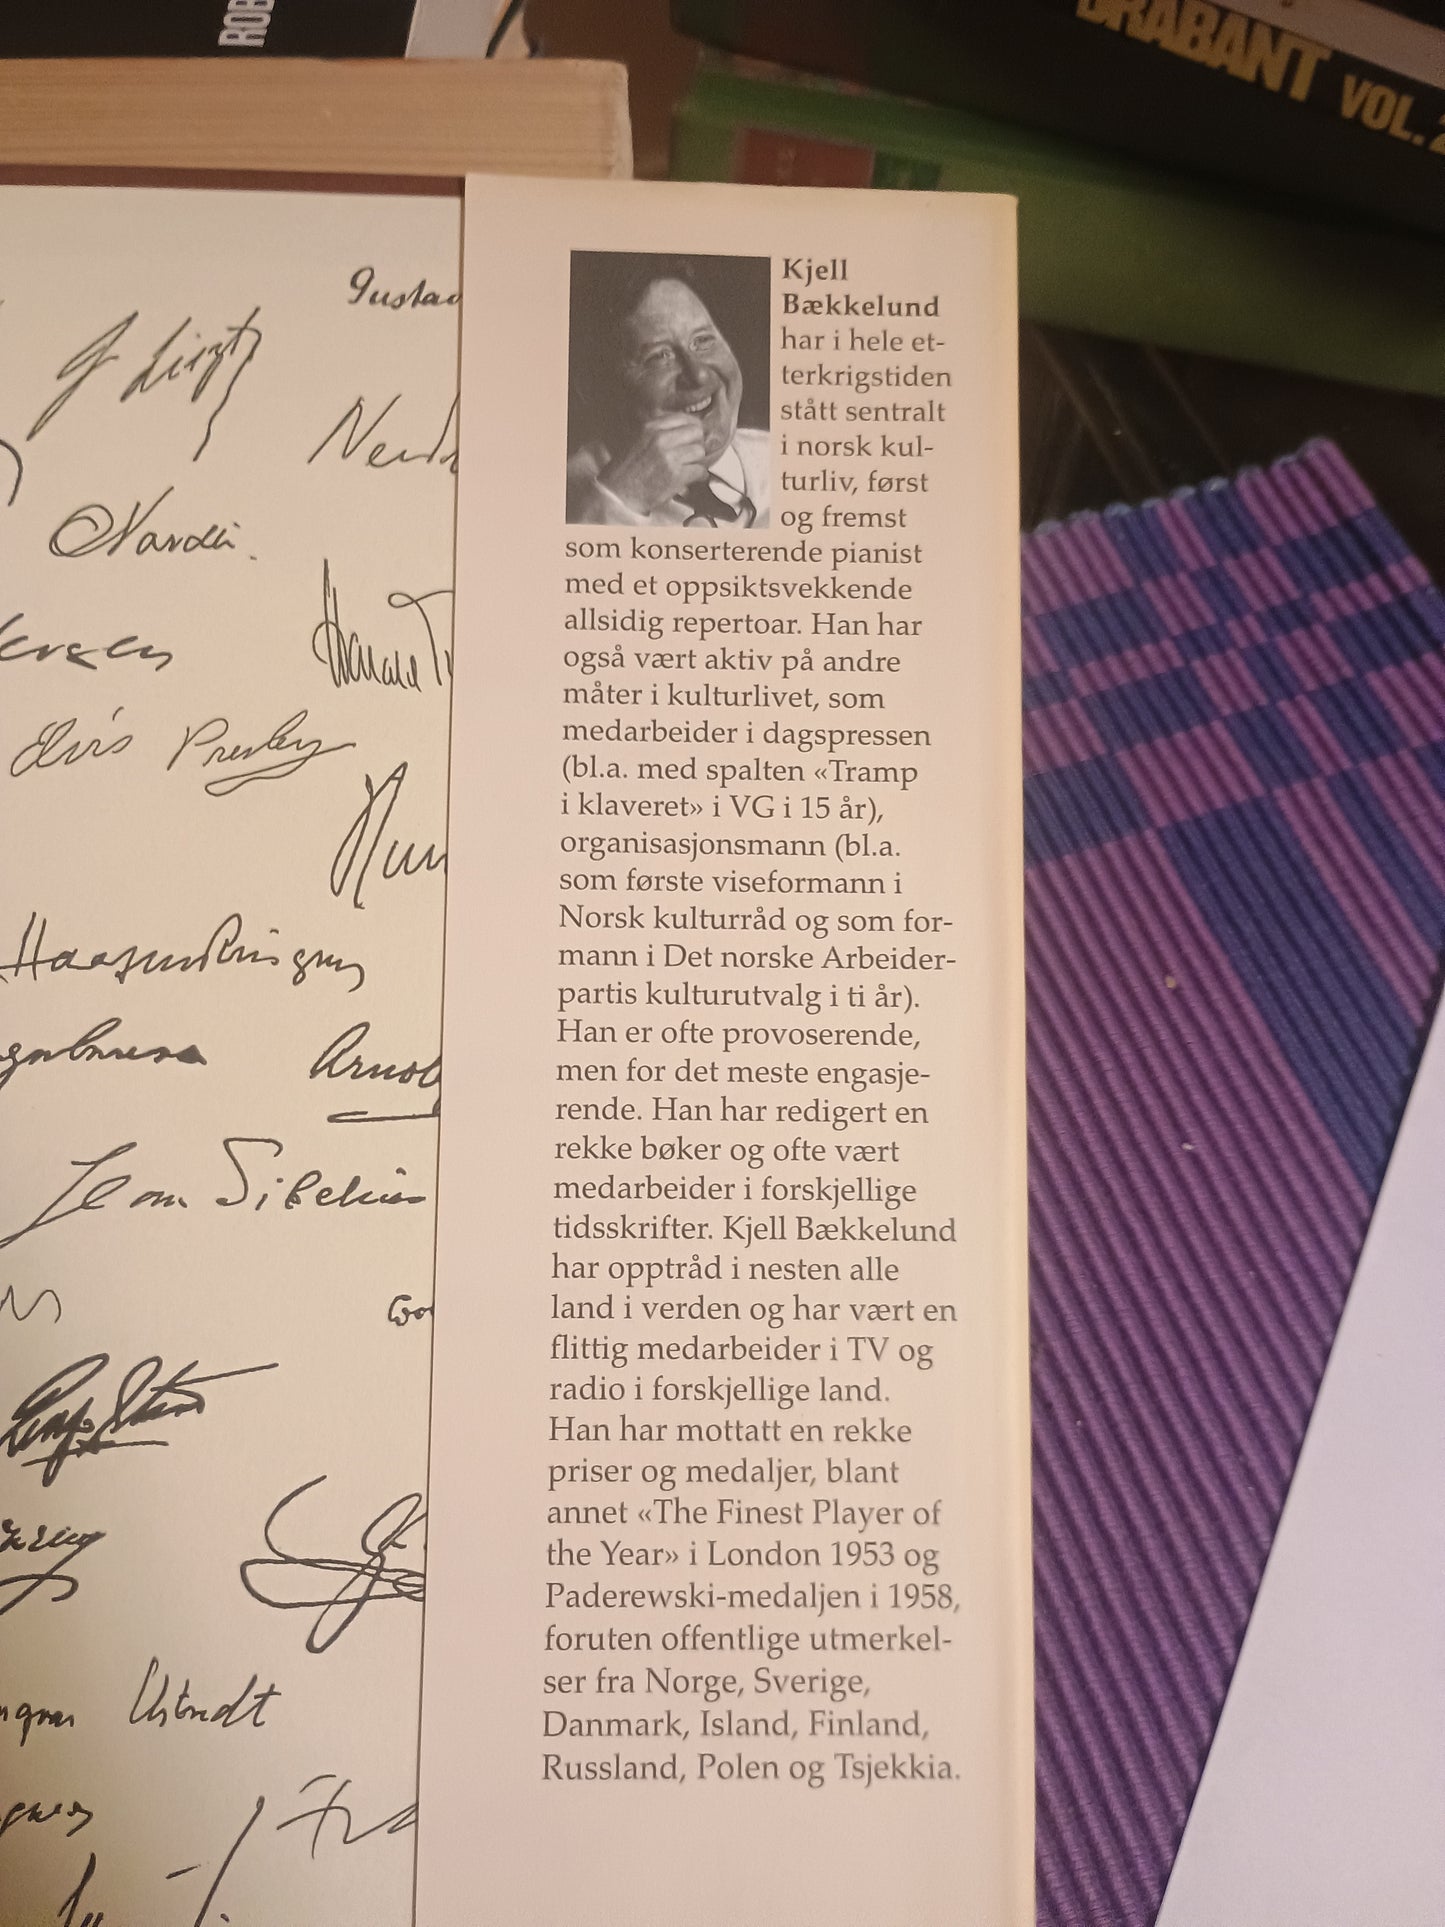 ROB
BRABANT VOL. 2
Gustav
Liszt
Jean Sibelius
Elvis Presley
Arnol
Kjell
Bækkelund
har i hele et-
terkrigstiden
stått sentralt
i norsk kul-
turliv, først
og fremst
som konserterende pianist
med et oppsiktsvekkende
allsidig repertoar. Han har
også vært aktiv på andre
måter i kulturlivet, som
medarbeider i dagspressen
(bl.a. med spalten «Tramp
i klaveret» i VG i 15 år),
organisasjonsmann (bl.a.
som første viseformann i
Norsk kulturråd og som for-
mann i Det norske Arbeider-
partis kulturutvalg i ti år).
Han er ofte provoserende,
men for det meste engasje-
rende. Han har redigert en
rekke bøker og ofte vært
medarbeider i forskjellige
tidsskrifter. Kjell Bækkelund
har opptråd i nesten alle
land i verden og har vært en
flittig medarbeider i TV og
radio i forskjellige land.
Han har mottatt en rekke
priser og medaljer, blant
annet «The Finest Player of
the Year» i London 1953 og
Paderewski-medaljen i 1958,
foruten offentlige utmerkel-
ser fra Norge, Sverige,
Danmark, Island, Finland,
Russland, Polen og Tsjekkia.